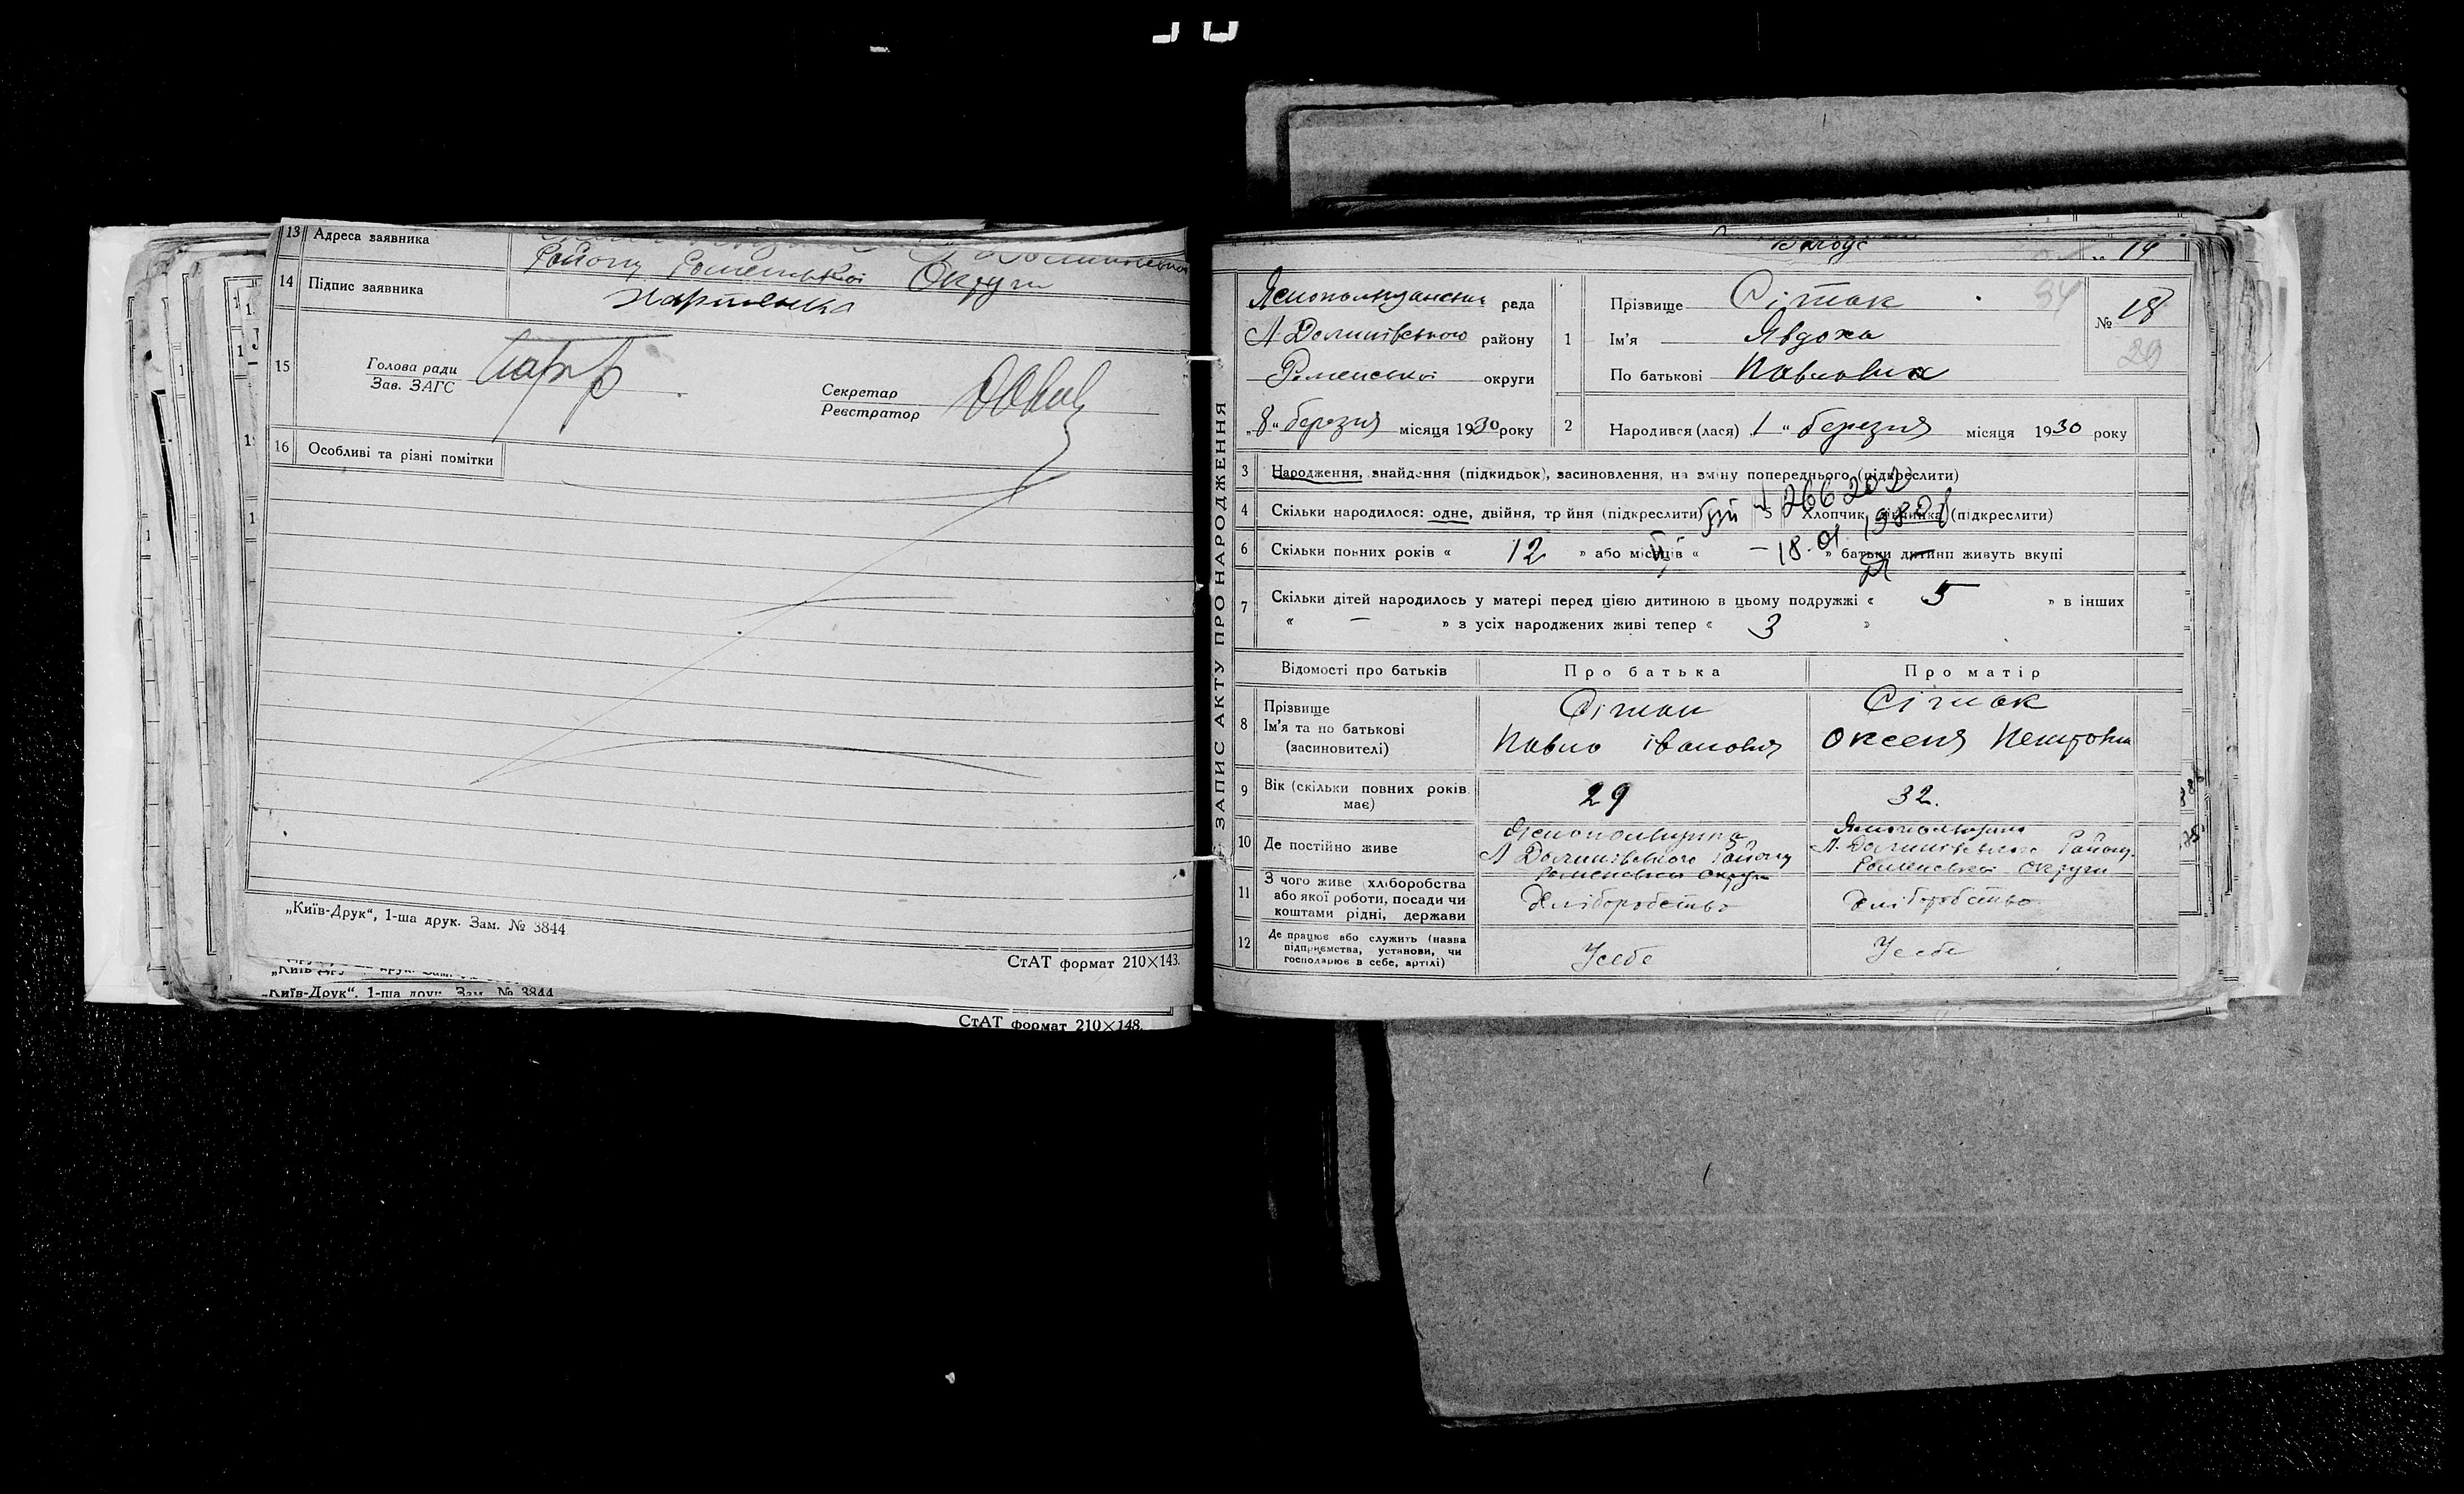 13 Адреса заявника
Району Роменської Округи
14 Підпис заявника
15 Голова ради
Зав. ЗАГС
Секретар
Реєстратор
16 Особливі та різні помітки
„Київ-Друк“, 1-ша друк. Зам. № 3844
СтАТ формат 210×143.
„Київ-Друк“. 1-ша друк. Зам. № 3844
СтАТ формат 210×148.
14
ЗАПИС АКТУ ПРО НАРОДЖЕННЯ
рада
Л Долинівського району
Роменської округи
„8“ березня місяця 1930 року
1 Прізвище Сітак
Ім'я Явдоха
По батькові Павловна
94
№ 18
29
2 Народився (лася) „1“ березня місяця 1930 року
3 Народження, знайдення (підкидьок), засиновлення, на зміну попереднього (підкреслити)
4 Скільки народилося: одне, двійня, трійня (підкреслити) 5 Хлопчик, дівчинка (підкреслити)
6 Скільки повних років « 12 » або місяців « — » батьки дитини живуть вкупі
18. 01
7 Скільки дітей народилось у матері перед цією дитиною в цьому подружжі « 5 » в інших
« — » з усіх народжених живі тепер « 3 »
Відомості про батьків Про батька Про матір
8 Прізвище
Ім'я та по батькові
(засиновителі)
Сітак
Павло Іванович
Сітак
Оксеня Петровна
9 Вік (скільки повних років має) 29 32.
10 Де постійно живе
Л Долинівського Району
Роменської Округи
Л. Долинівського Району.
Роменської Округи
11 З чого живе (хліборобства
або якої роботи, посади чи
коштами рідні, держави
Хліборобство Хліборобство
12 Де працює або служить (назва
підприємства, установи, чи
господарює в себе, артілі)
Усебе Усебе